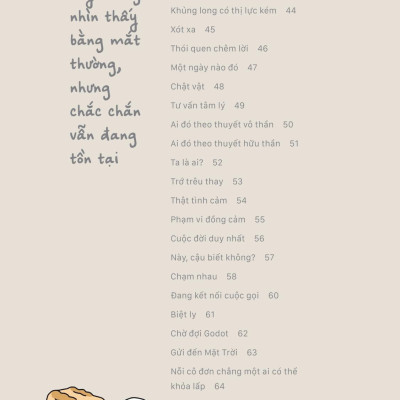 nhìn thấy
bằng mắt
thường,
nhưng
chắc chắn
vẫn đang
tồn tại
Khủng long có thị lực kém 44
Xót xa 45
Thói quen chêm lời 46
Một ngày nào đó 47
Chật vật 48
Tư vấn tâm lý 49
Ai đó theo thuyết vô thần 50
Ai đó theo thuyết hữu thần 51
Ta là ai? 52
Trớ trêu thay 53
Thật tình cảm 54
Phạm vi đồng cảm 55
Cuộc đời duy nhất 56
Này, cậu biết không? 57
Chạm nhau 58
Đang kết nối cuộc gọi 60
Biệt ly 61
Chờ đợi Godot 62
Gửi đến Mặt Trời 63
Nỗi cô đơn chẳng một ai có thể
khỏa lấp 64